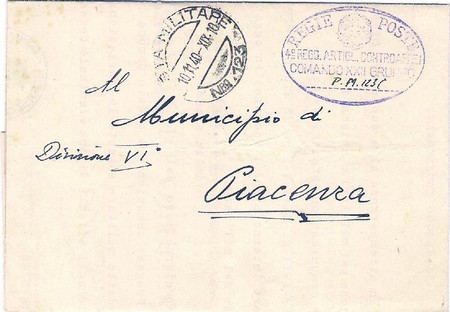 POSTA MILITARE
10.11.40.XIX.10
N° 123
REGIE POSTE
4° REGG. ARTIGL. CONTROAEREI
COMANDO XXII GRUPPO
P. M. 123
Al
Municipio di
Divisione VI°
Piacenza